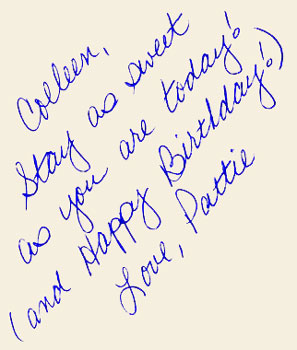 Colleen,
Stay as sweet
as you are today!
(and Happy Birthday!)
Love, Pattie